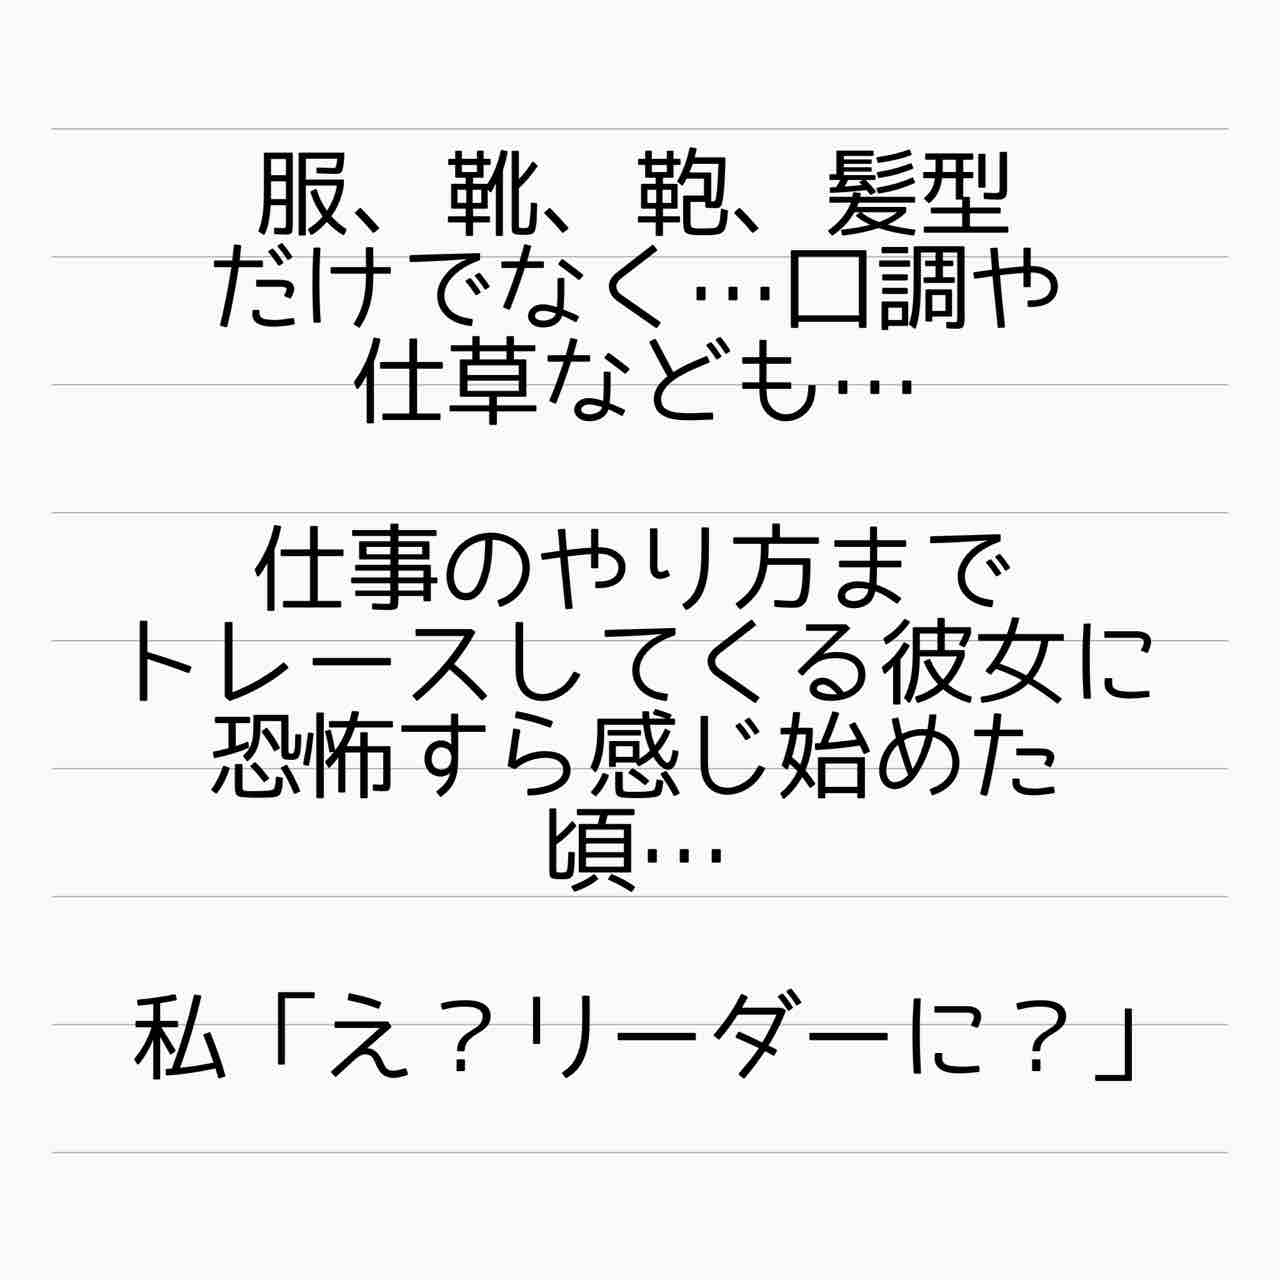 服、靴、鞄、髪型
だけでなく…口調や
仕草なども…
仕事のやり方まで
トレースしてくる彼女に
恐怖すら感じ始めた
頃…
私「え？リーダーに？」